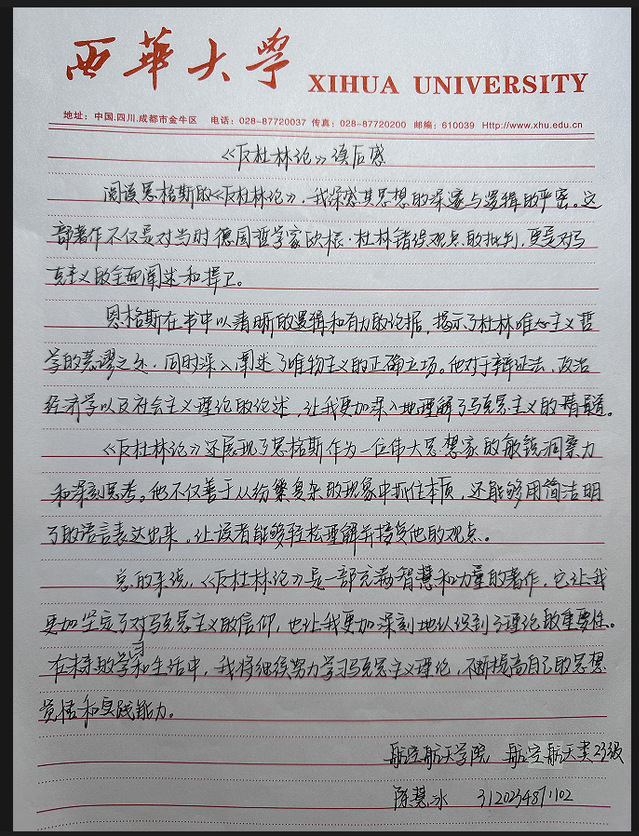 西華大学 XIHUA UNIVERSITY
地址：中国.四川.成都市金牛区 电话：028-87720037 传真：028-87720200 邮编：610039 Http://www.xhu.edu.cn
《反杜林论》读后感
阅读恩格斯的《反杜林论》，我深感其思想的深邃与逻辑的严密。这
部著作不仅是对当时德国哲学家欧根·杜林错误观点的批判，更是对马
克思主义的全面阐述和捍卫。
恩格斯在书中以清晰的逻辑和有力的论据，揭示了杜林唯心主义哲
学的荒谬之处，同时深入阐述了唯物主义的正确立场。他对于辩证法、政治
经济学以及社会主义理论的论述，让我更加深入地理解了马克思主义的精道。
《反杜林论》还展现了恩格斯作为一位伟大思想家的敏锐洞察力
和深刻思考。他不仅善于从纷繁复杂的现象中抓住本质，还能够用简洁明
了的语言表达出来，让读者能够轻松理解并接受他的观点。
总的来说，《反杜林论》是一部充满智慧和力量的著作，它让我
更加坚定了对马克思主义的信仰，也让我更加深刻地认识到了理论的重要性。
在未来的学习和生活中，我将继续努力学习马克思主义理论，不断提高自己的思想
觉悟和实践能力。
航空航天学院 航空航天类23级
陈慧冰